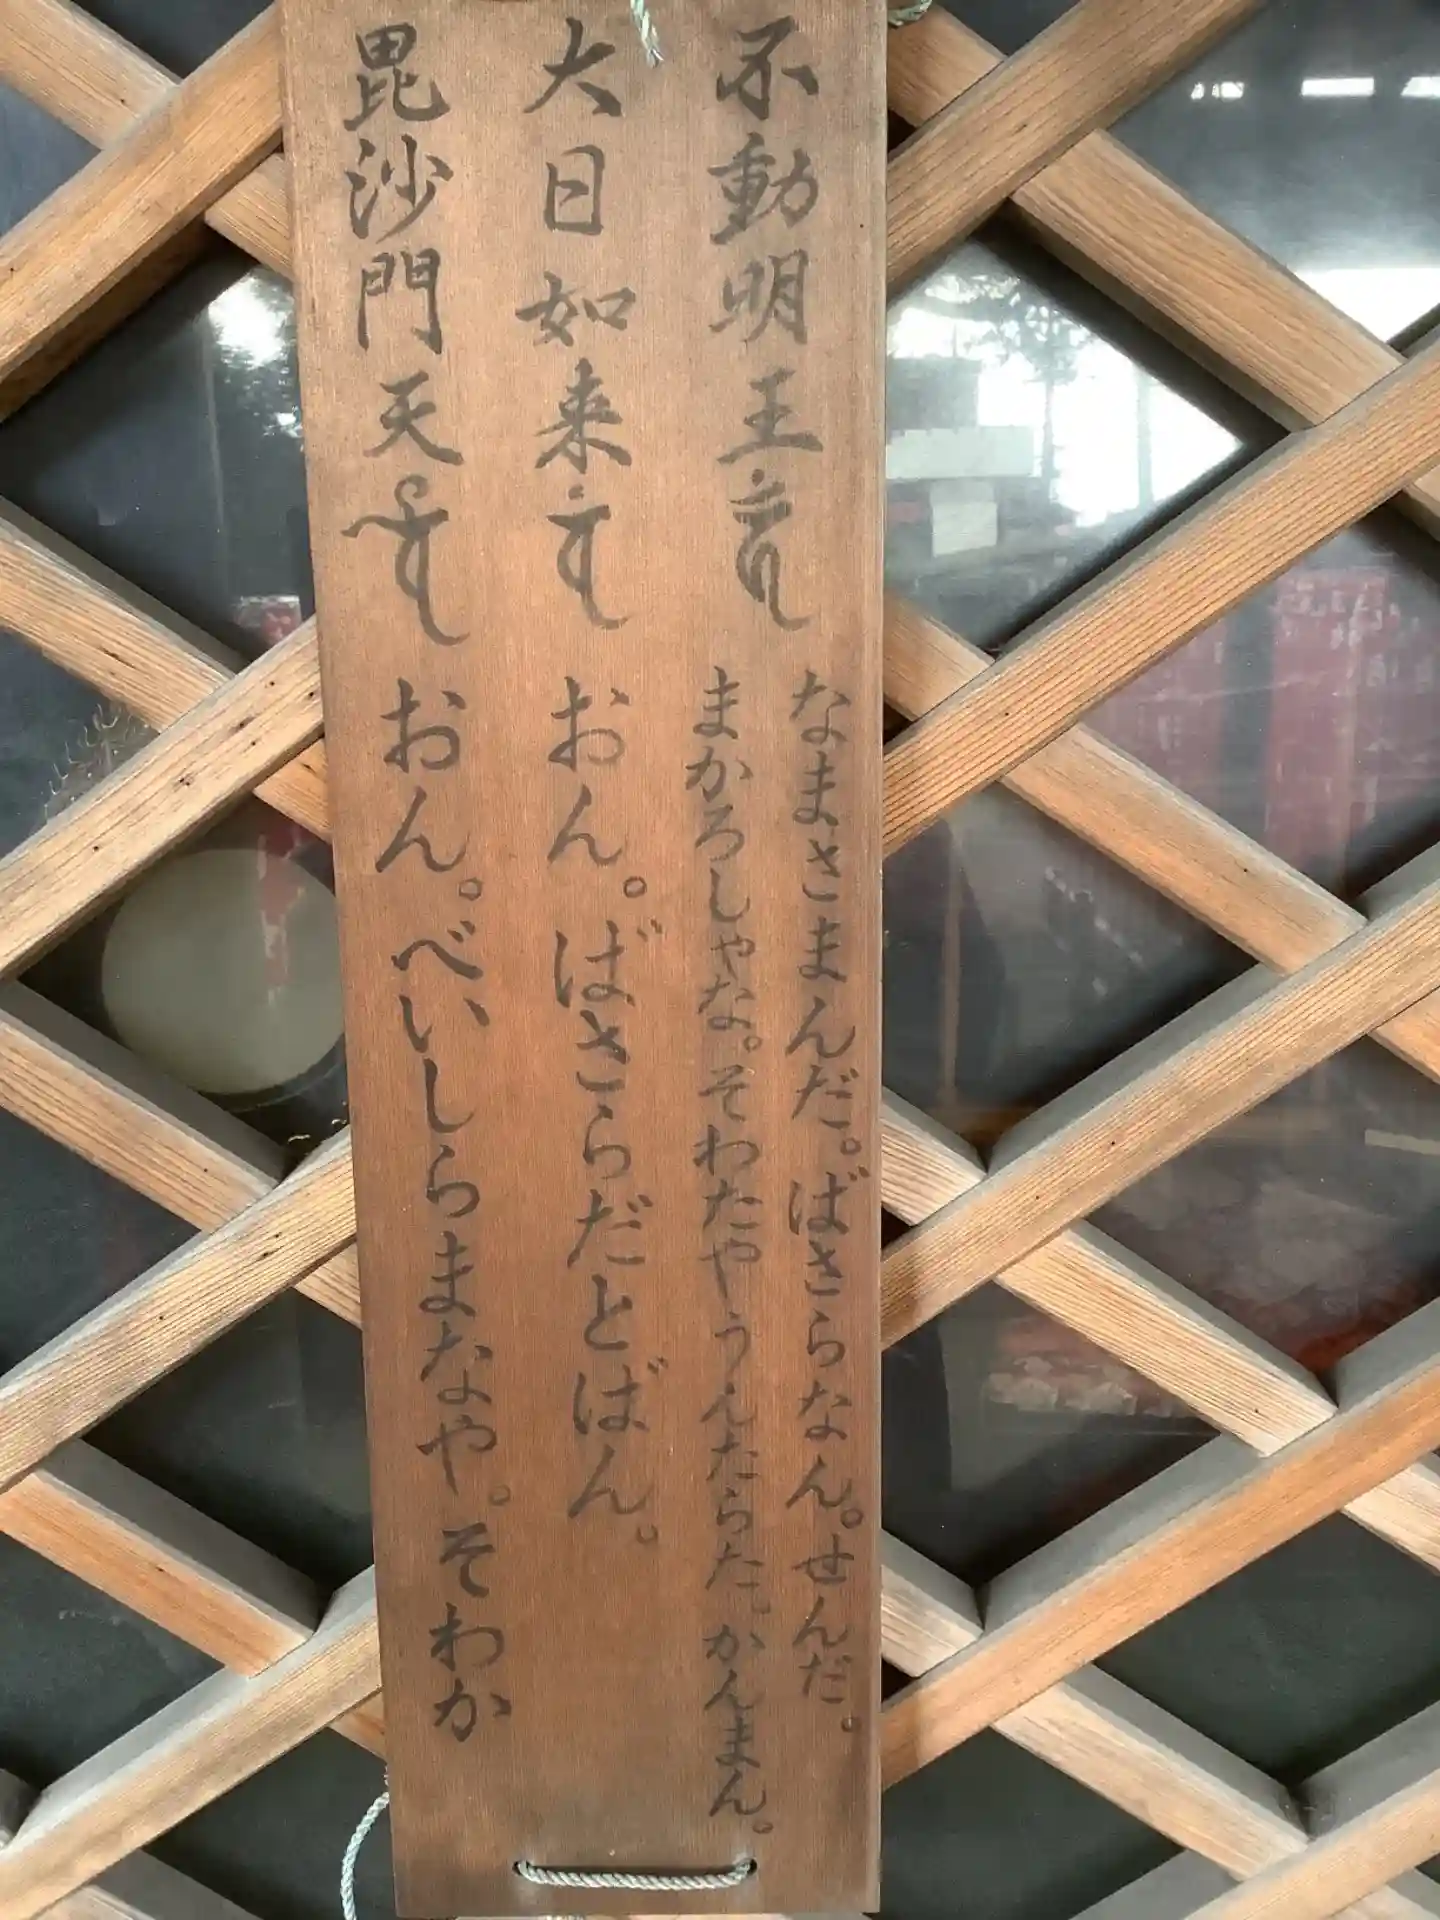 不動明王
なまさまんだ。ばさらなん。せんだ。
まかろしゃな。そわたやうんたらた。かんまん。
大日如来
おん。ばさらだとばん。
毘沙門天
おん。べいしらまなや。そわか